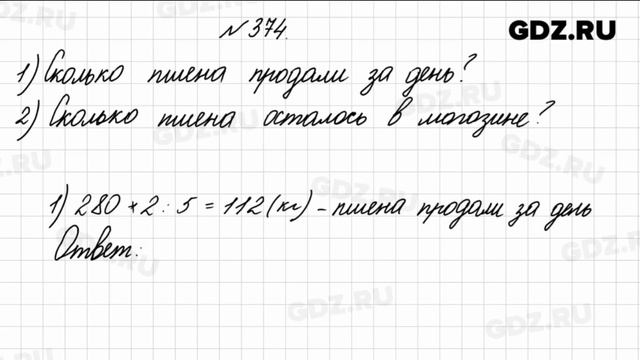 № 374.
GDZ.RU
1) Сколько пшена продали за день?
2) Сколько пшена осталось в магазине?
1) 280 * 2 : 5 = 112 (кг) - пшена продали за день
Ответ: